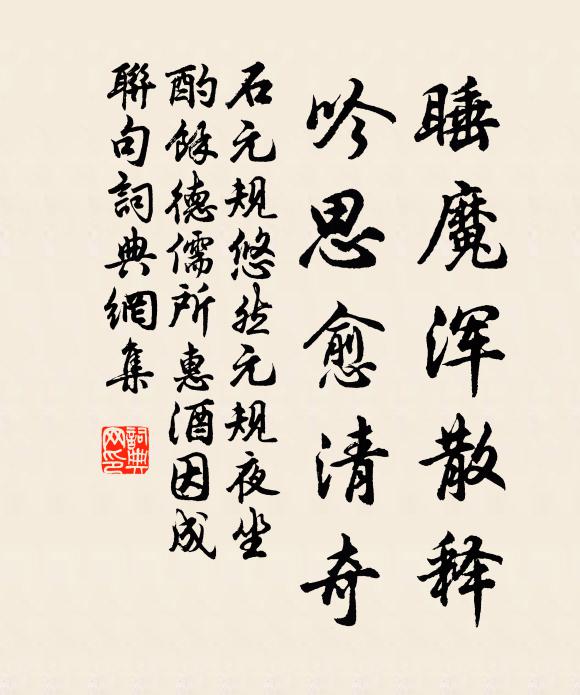 睡魔浑散释
吟思愈清奇
石元规悠然元规夜坐
酌餘德儒所惠酒因成
聯句詞典網集
詞典
网印